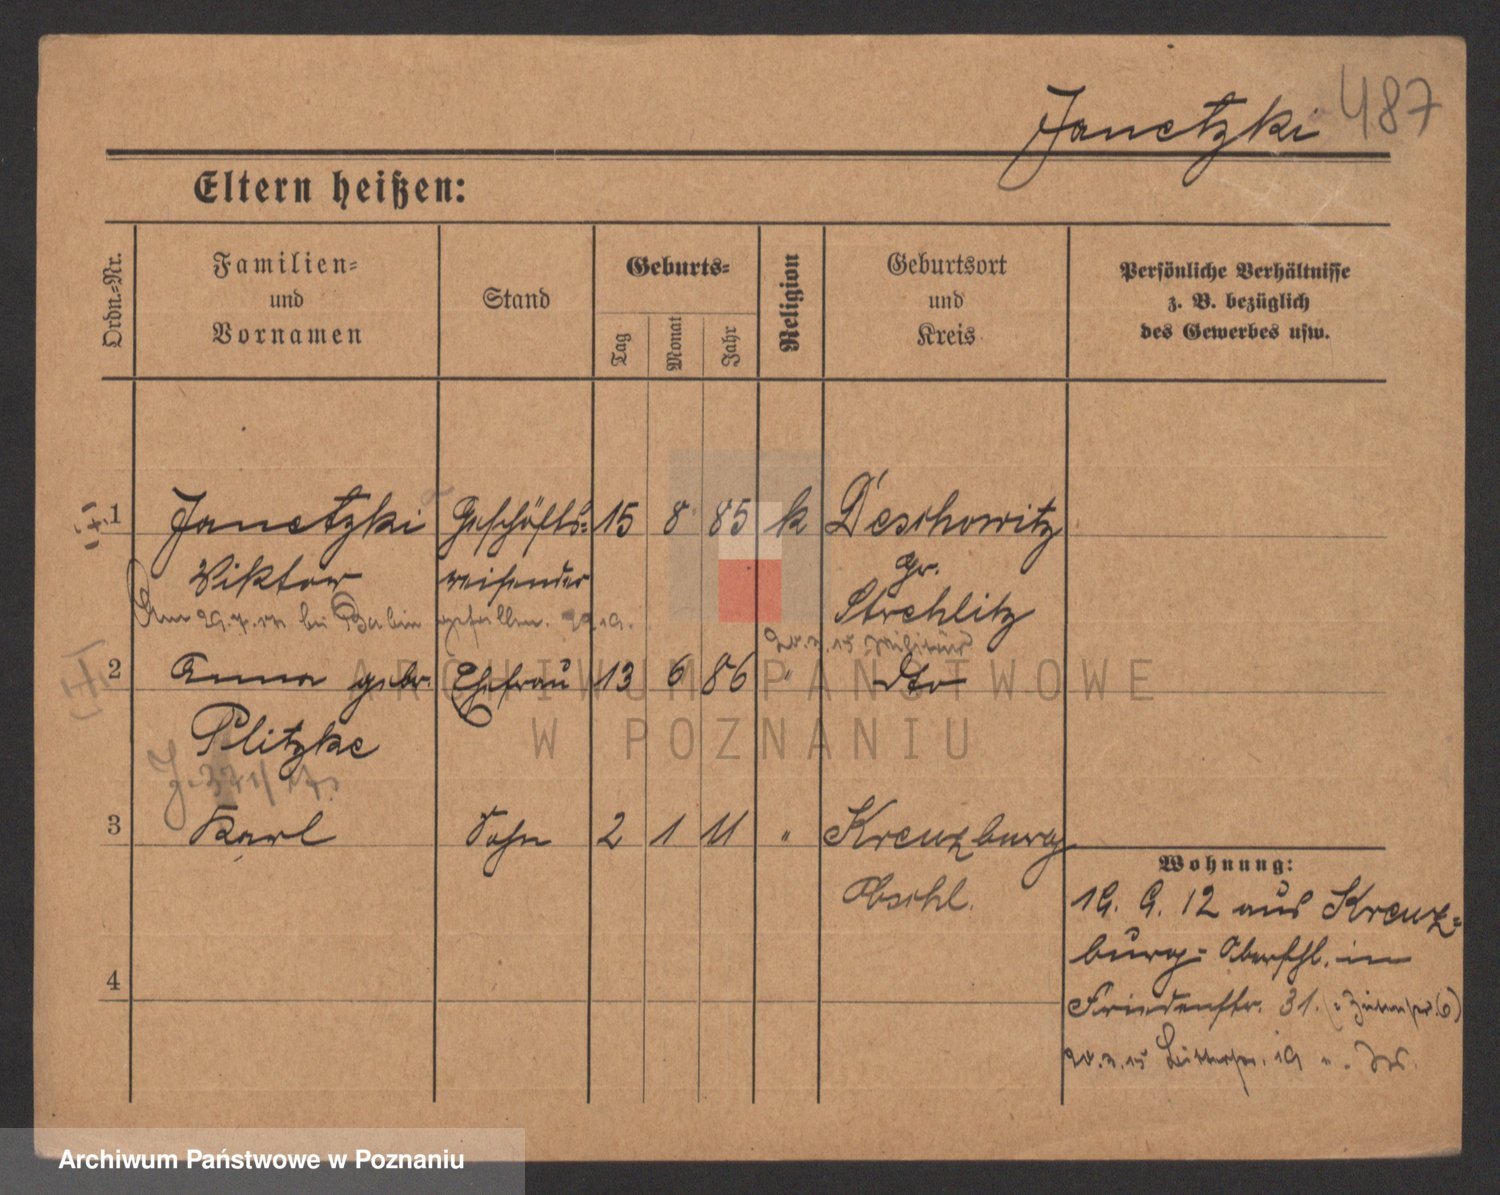 Janetzki 487
Eltern heißen:
Ordn.-Nr.
Familien-
und
Vornamen
Stand
Geburts-
Tag
Monat
Jahr
Religion
Geburtsort
und
Kreis
Persönliche Verhältnisse
z. B. bezüglich
des Gewerbes usw.
1 Janetzki Geschäfts- 15 8 85 k Deschowitz
Viktor reisender Gr.
Strehlitz
Am bei gefallen.
2 Anna gebr. Ehefrau 13 6 86 " dto
Plitzke
J. 371/17.
3 Karl Sohn 2 1 11 " Kreuzburg
Obschl.
4
Wohnung:
19. 9. 12 aus Kreuz-
burg- Oberschl. in
Friedenstr. 31.
ARCHIWUM PAŃSTWOWE
W POZNANIU
Archiwum Państwowe w Poznaniu